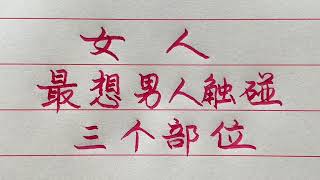 女人
最想男人触碰
三个部位